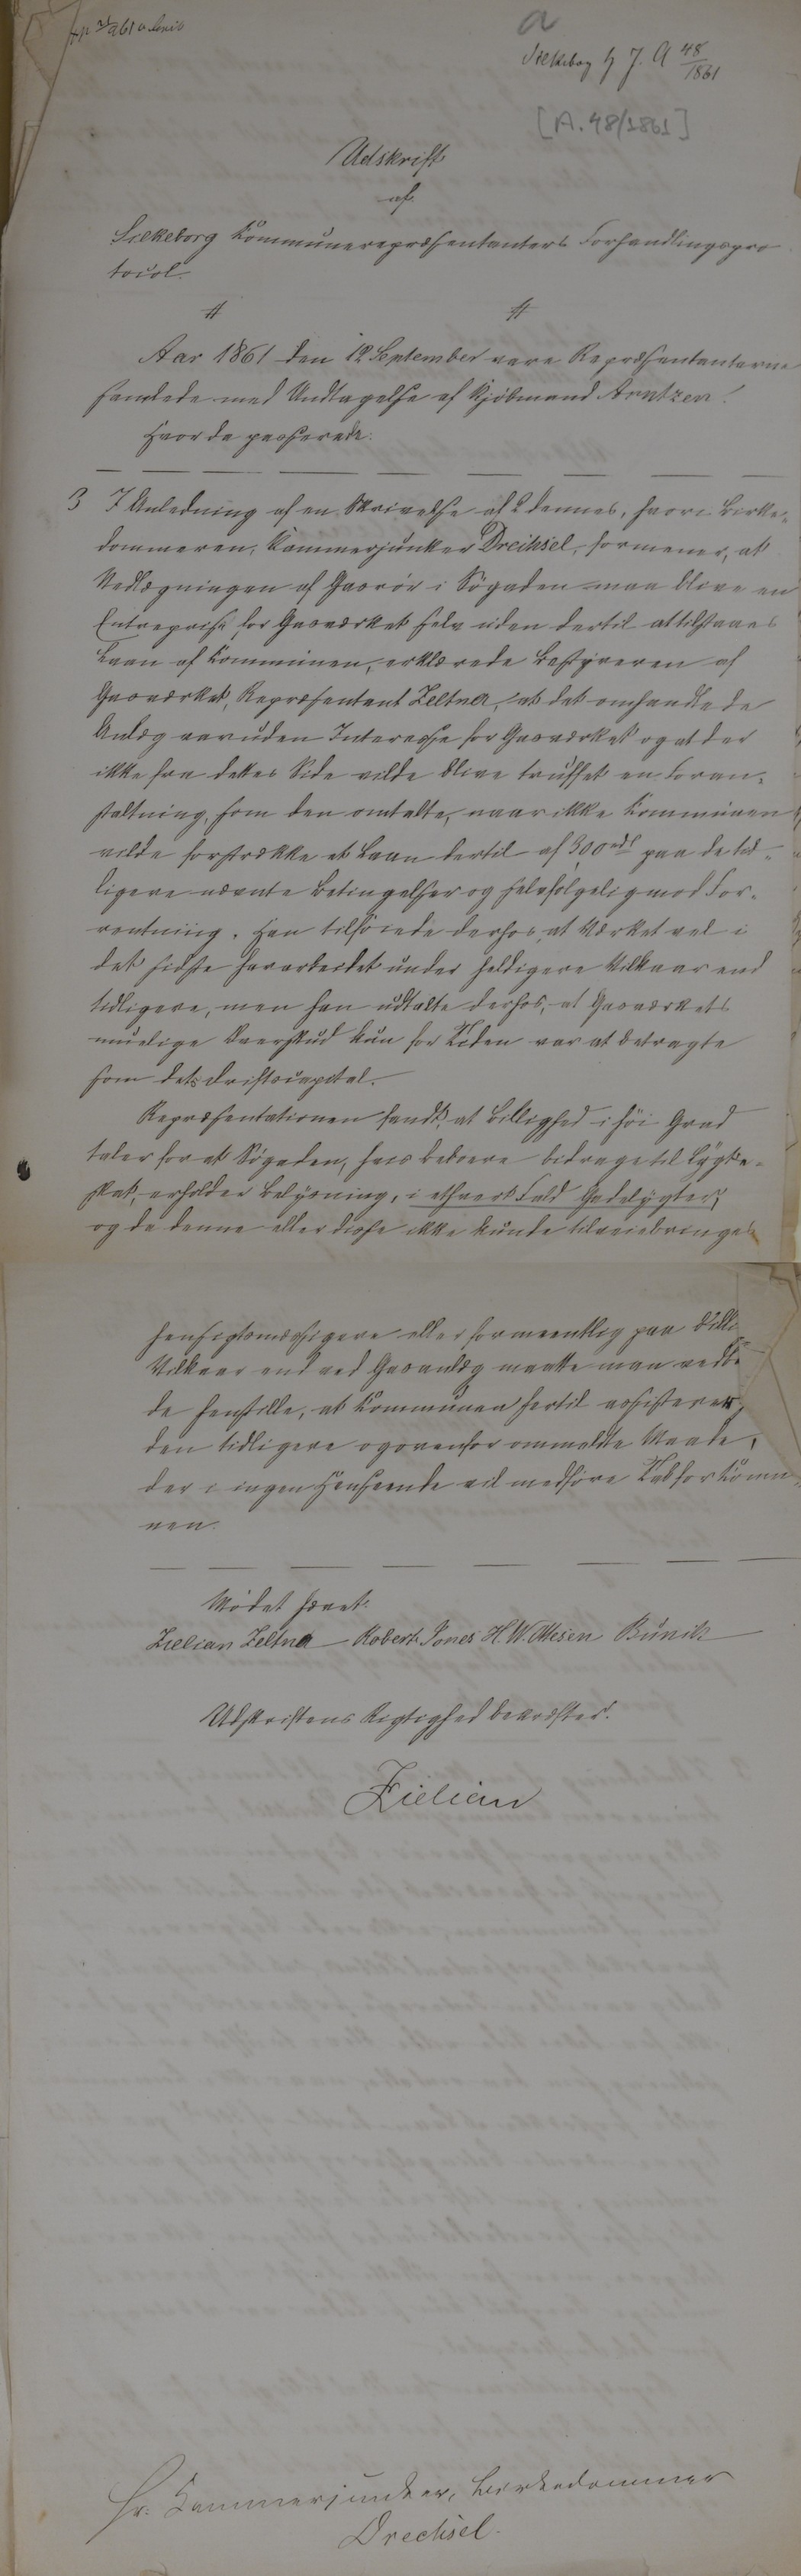 a
Silkeborg h J. A 48/1861
[A. 48/1861]
Udskrift
af
Silkeborg Kommunerepræsentanters Forhandlingspro
tocol.
Aar 1861 den 12 September vare Repræsentanterne
samlede med Undtagelse af Kjöbmand Arntzen!
Hvor da passerede:
3 I Anledning af en Skrivelse af 2 dennes, hvori Birke-
dommeren, Kammerjunker Dreihsel, formener, at
Nedlægningen af Gasrör i Sögaden maa blive en
Entreprise for Gasværket selv uden dertil at tilstaaes
Laan af Kommunen, erklærede Bestyreren af
Gasværket, Repræsentant Zeltner, at det omhandlede
Anlæg var uden Interesse for Gasværket og at der
ikke fra dettes Side vilde blive truffet en Foran-
staltning, som den omtalte, naar ikke Kommunen
vilde forstrække et Laan dertil af 300 rdl paa de tid-
ligere nævnte Betingelser og selvfølgelig mod For-
rentning. Han tilföiede derhos, at Værket vel i
det sidste har arbeidet under heldigere Vilkaar end
tidligere, men han udtalte derhos, at Gasværkets
muelige Overskud kun for Tiden var at betragte
som dets Driftscapital.
Repræsentationen fandt, at Billighed i höi Grad
taler for at Sögaden, hvis Beboere bidrage til Lygte-
skat, erholder Belysning, i ethvert Fald Gadelygter,
og da denne eller disse ikke kunde tilveiebringes
hensigtsmæssigere eller formeentlig paa billi
Vilkaar end ved Gasanlæg maatte man vedbl
de henstille, at Kommunen hertil assisterer
den tidligere og ovenfor ommeldte Maade,
der i ingen Henseende vil medföre Tab for Komm
nen.
Mödet hævet.
Zielian Zeltner Robert Jones H. W. Ottesen Bünik
Udskriftens Rigtighed bekræftes.
Zielian
Hr. Kammerjunker, Birkedommer
Drechsel.